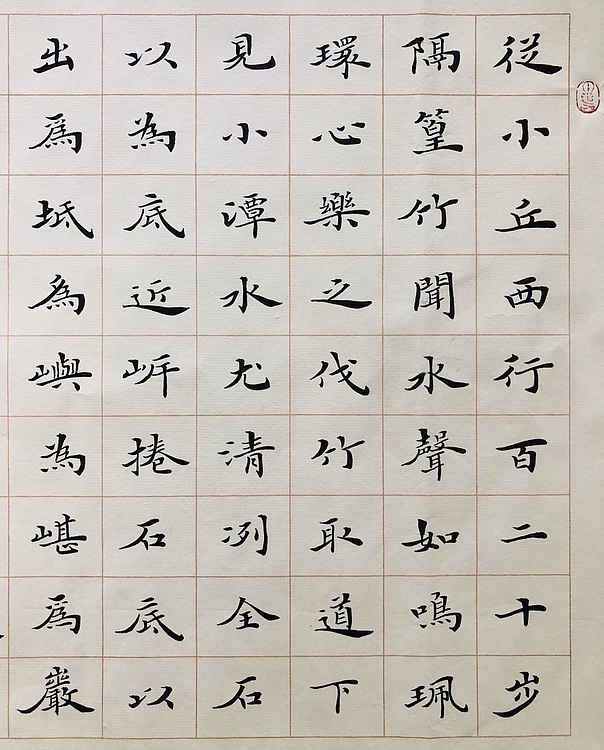 從小丘西行百二十步
隔篁竹聞水聲如鳴珮
環心樂之伐竹取道下
見小潭水尤清冽全石
以為底近岸捲石底以
出爲坻爲嶼為嵁爲巖